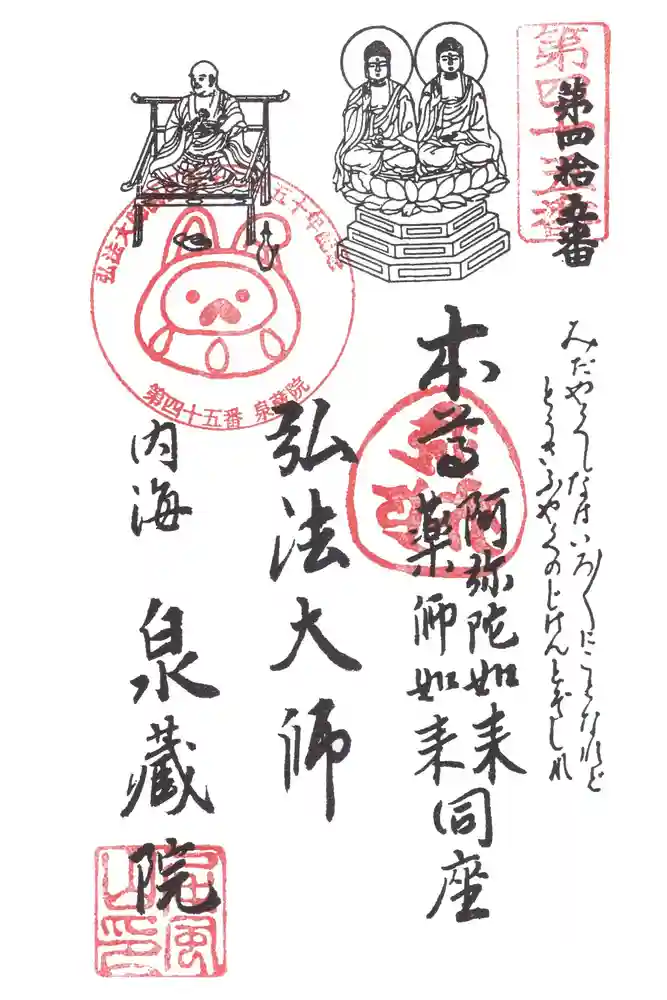 第四十五番
第四拾五番
みだやくしなはいろ〱にことなれど
とうさふやくのじげんとぞしれ
本尊
阿弥陀如来
薬師如来
同座
弘法大師
弘法大
五十年
第四十五番 泉蔵院
内海
泉蔵院